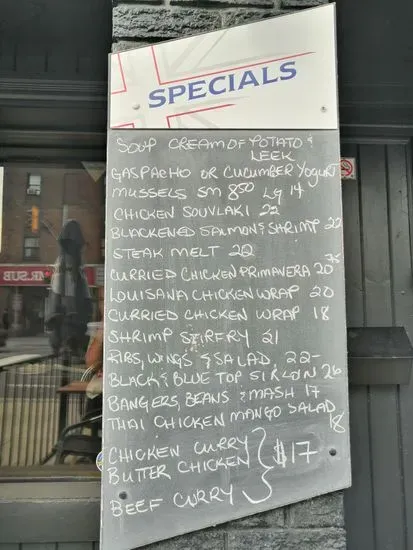 SPECIALS
SOUP CREAM OF POTATO &
LEEK
GASPACHO OR CUCUMBER YOGURT
MUSSELS SM 8.50 LG 14
CHICKEN SOUVLAKI 22
BLACKENED SALMON & SHRIMP 22
STEAK MELT 22
CURRIED CHICKEN PRIMAVERA 20.75
LOUISANA CHICKEN WRAP 20
CURRIED CHICKEN WRAP 18
SHRIMP STIRFRY 21
RIBS, WINGS & SALAD 22-
BLACK & BLUE TOP SIRLOIN 26
BANGERS, BEANS & MASH 17
THAI CHICKEN MANGO SALAD
18
CHICKEN CURRY
BUTTER CHICKEN $17
BEEF CURRY
MR.SUB